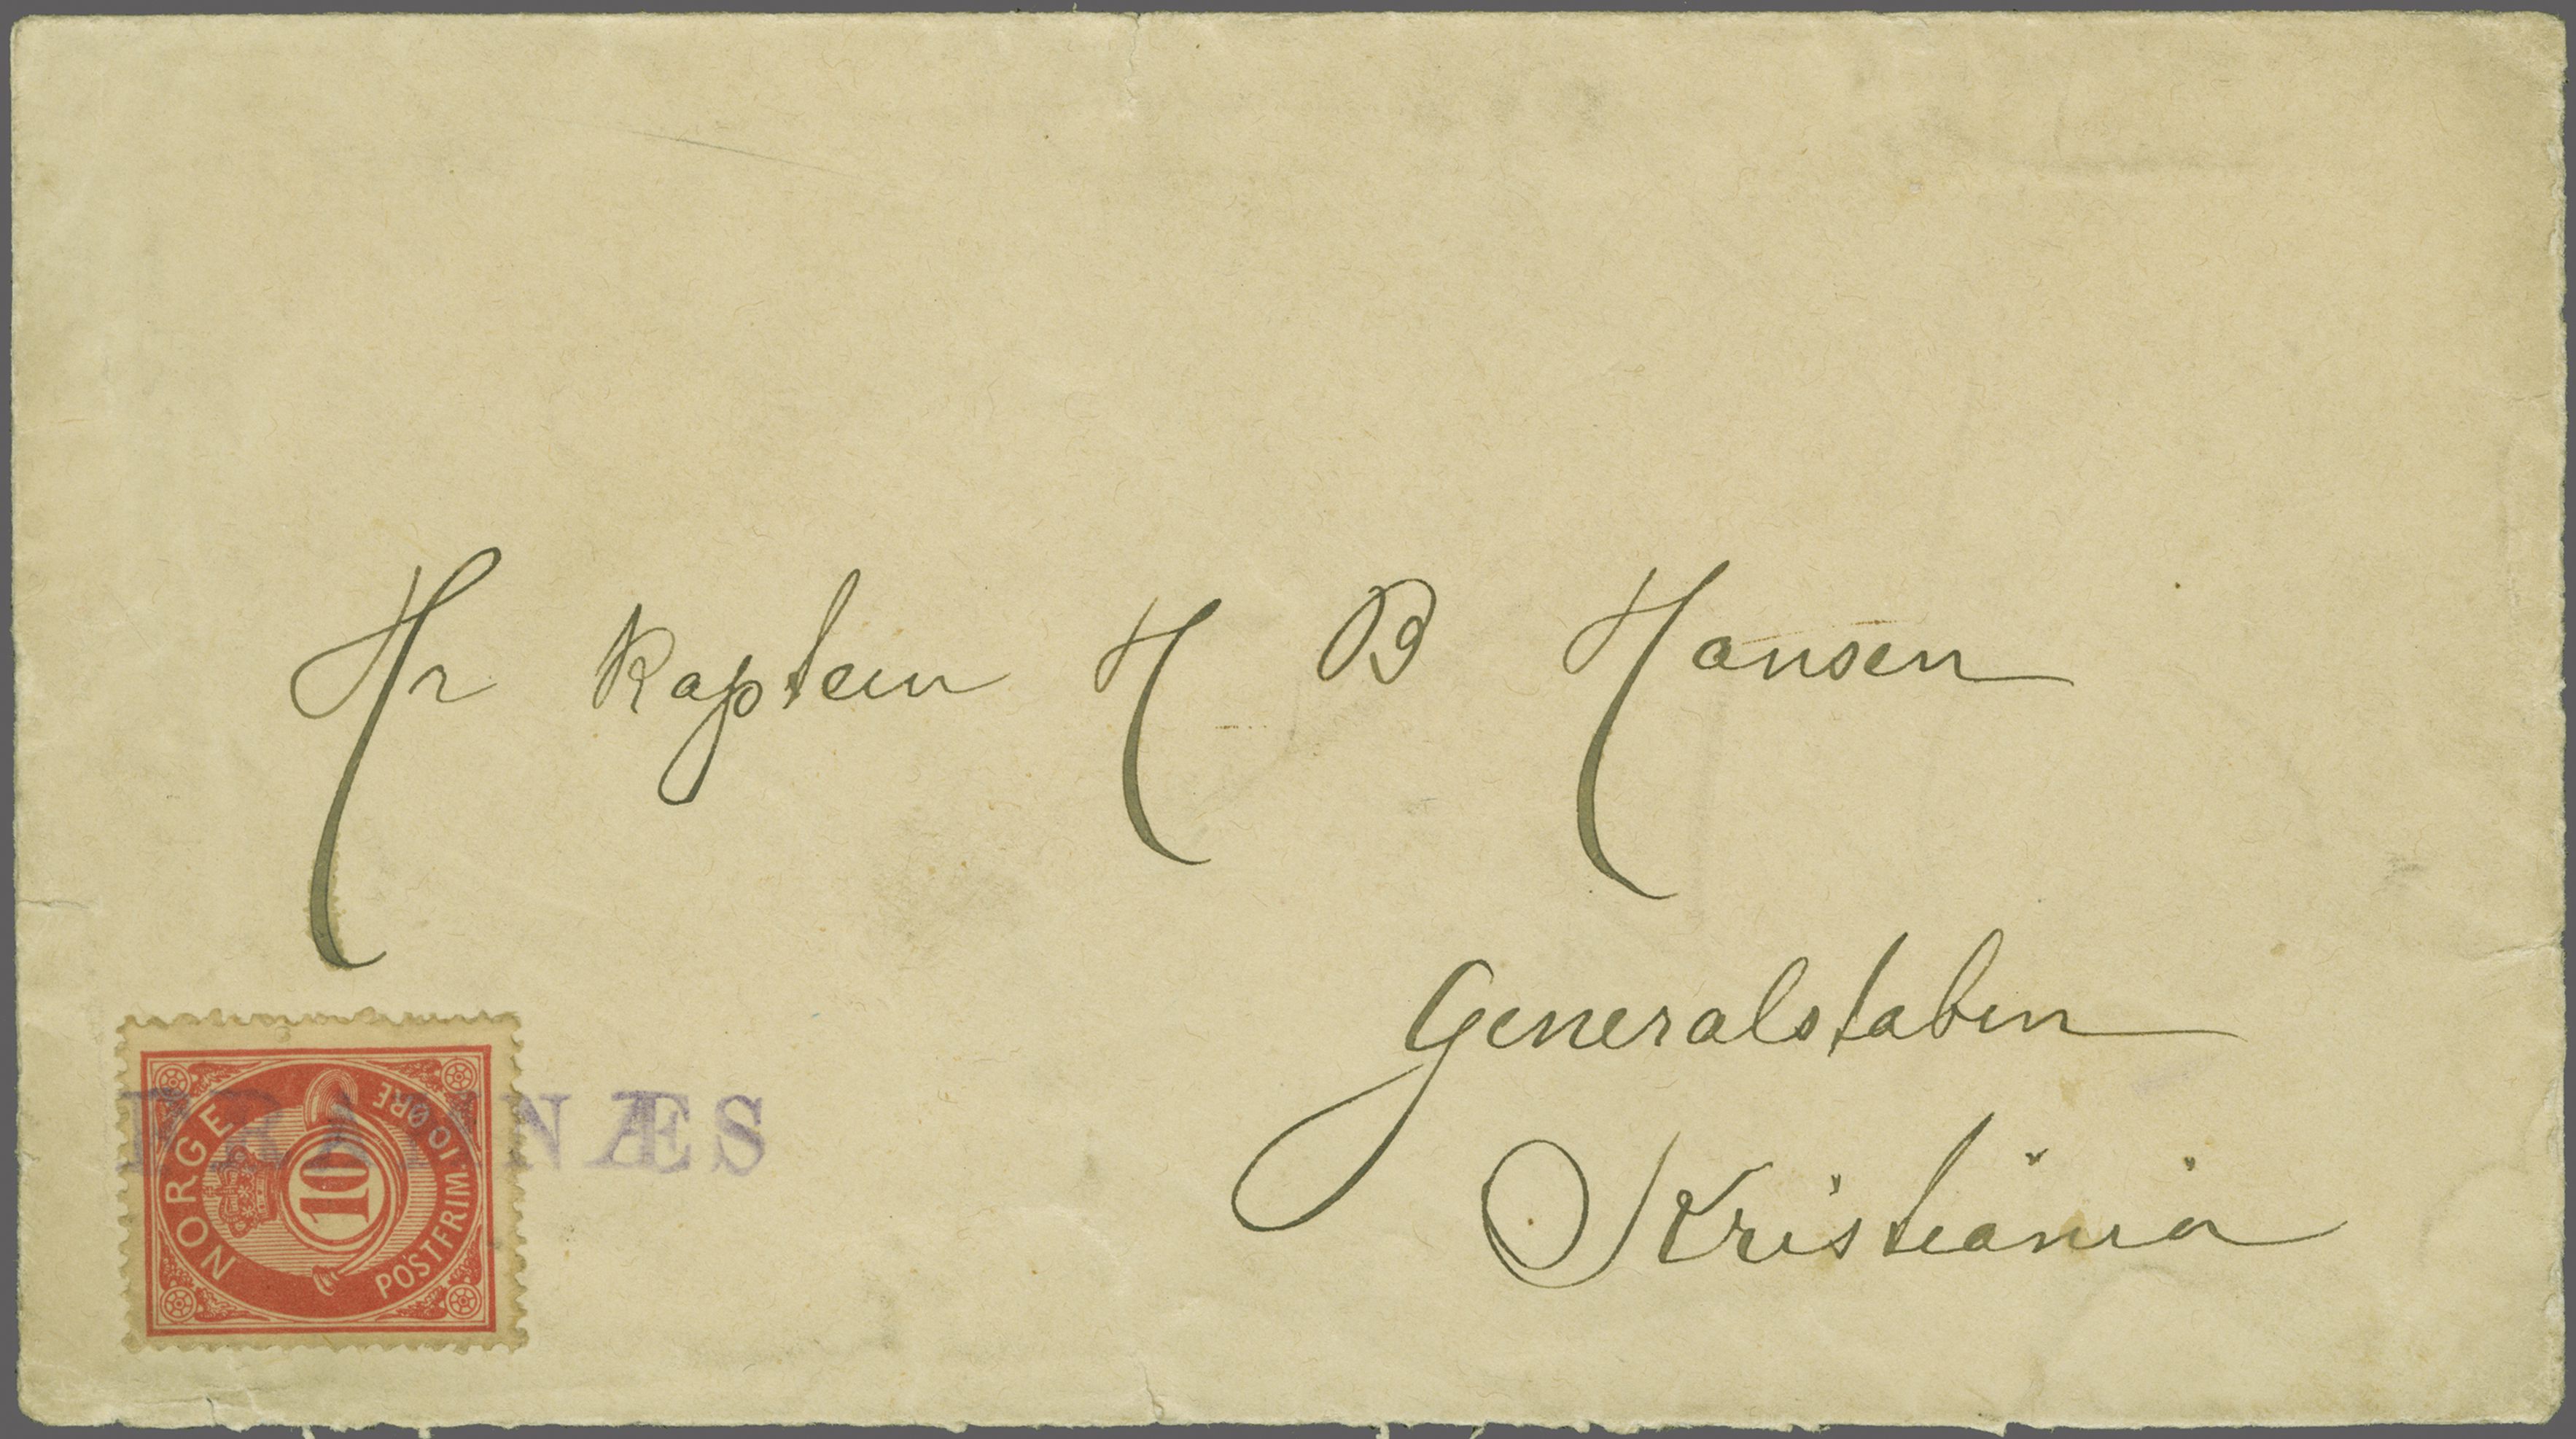 Hr Kaptein H B Hansen
Generalstaben
Kristiania
NORGE
POSTFRIM. 10 ØRE
10